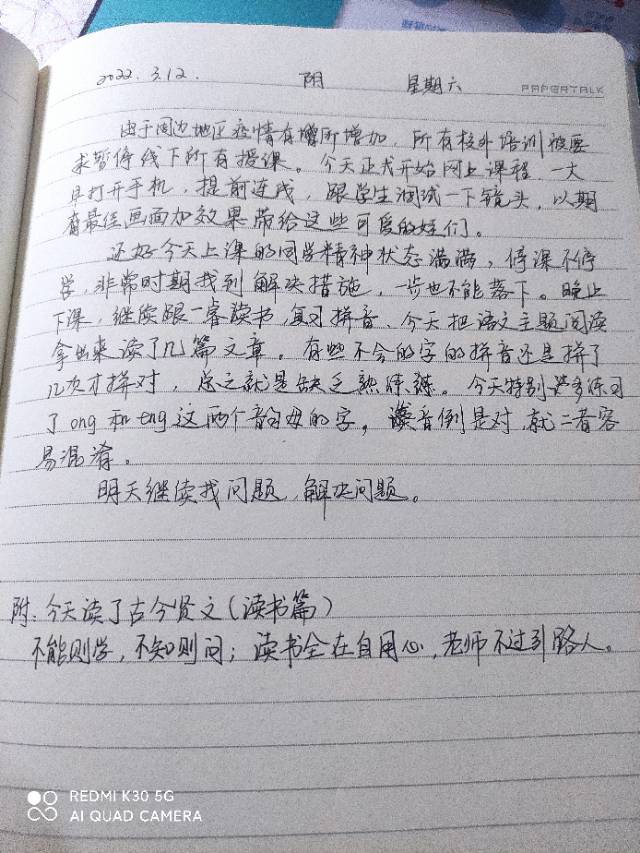 2022.3.12. 阴 星期六 PAPERTALK
由于周边地区疫情有所增加，所有校外培训被要
求暂停线下所有授课。今天正式开始网上课程，一大
早打开手机，提前连线，跟学生调试一下镜头，以期
有最佳画面加效果带给这些可爱的娃们。
还好今天上课的同学精神状态满满，停课不停
学，非常时期找到解决措施，一步也不能落下。晚上
下课，继续跟一睿读书，复习拼音，今天把语文主题阅读
拿出来读了几篇文章。有些不会的字的拼音还是拼了
几次才拼对，总之就是缺乏熟练。今天特别多练习
了ong和eng这两个韵母的字，读音倒是对，就二者容
易混淆。
明天继续找问题，解决问题。
附：今天读了古今贤文（读书篇）
不能则学，不知则问；读书全在自用心，老师不过引路人。
REDMI K30 5G
AI QUAD CAMERA